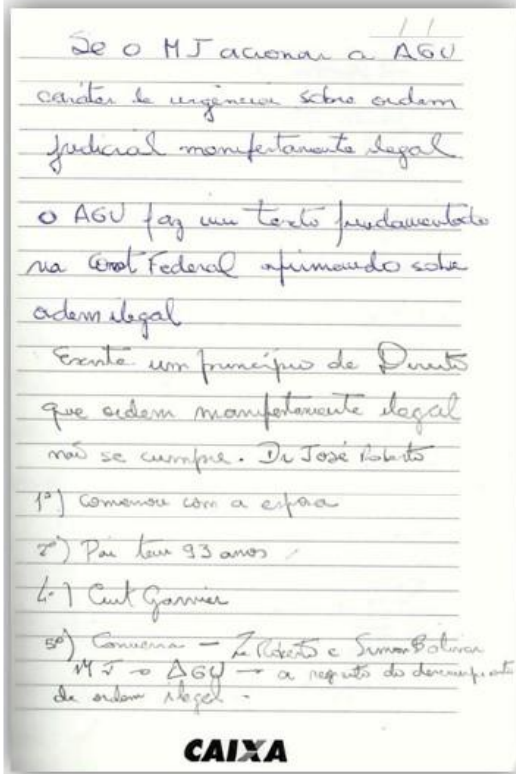 / /
Se o MJ acionar a AGU
caráter de urgência sobre ordem
judicial manifestamente ilegal
o AGU faz um texto fundamentado
na Const Federal afirmando sobre
ordem ilegal
Existe um princípio de Direito
que ordem manifestamente ilegal
não se cumpre. Dr José Roberto
1º) Comenou com a
2º) Pai tem 93 anos
4.) Cmt Garnier
5º) Conversa — Zé Roberto e Simon Bolivar
MJ → AGU → a respeito do
de ordem ilegal.
CAIXA